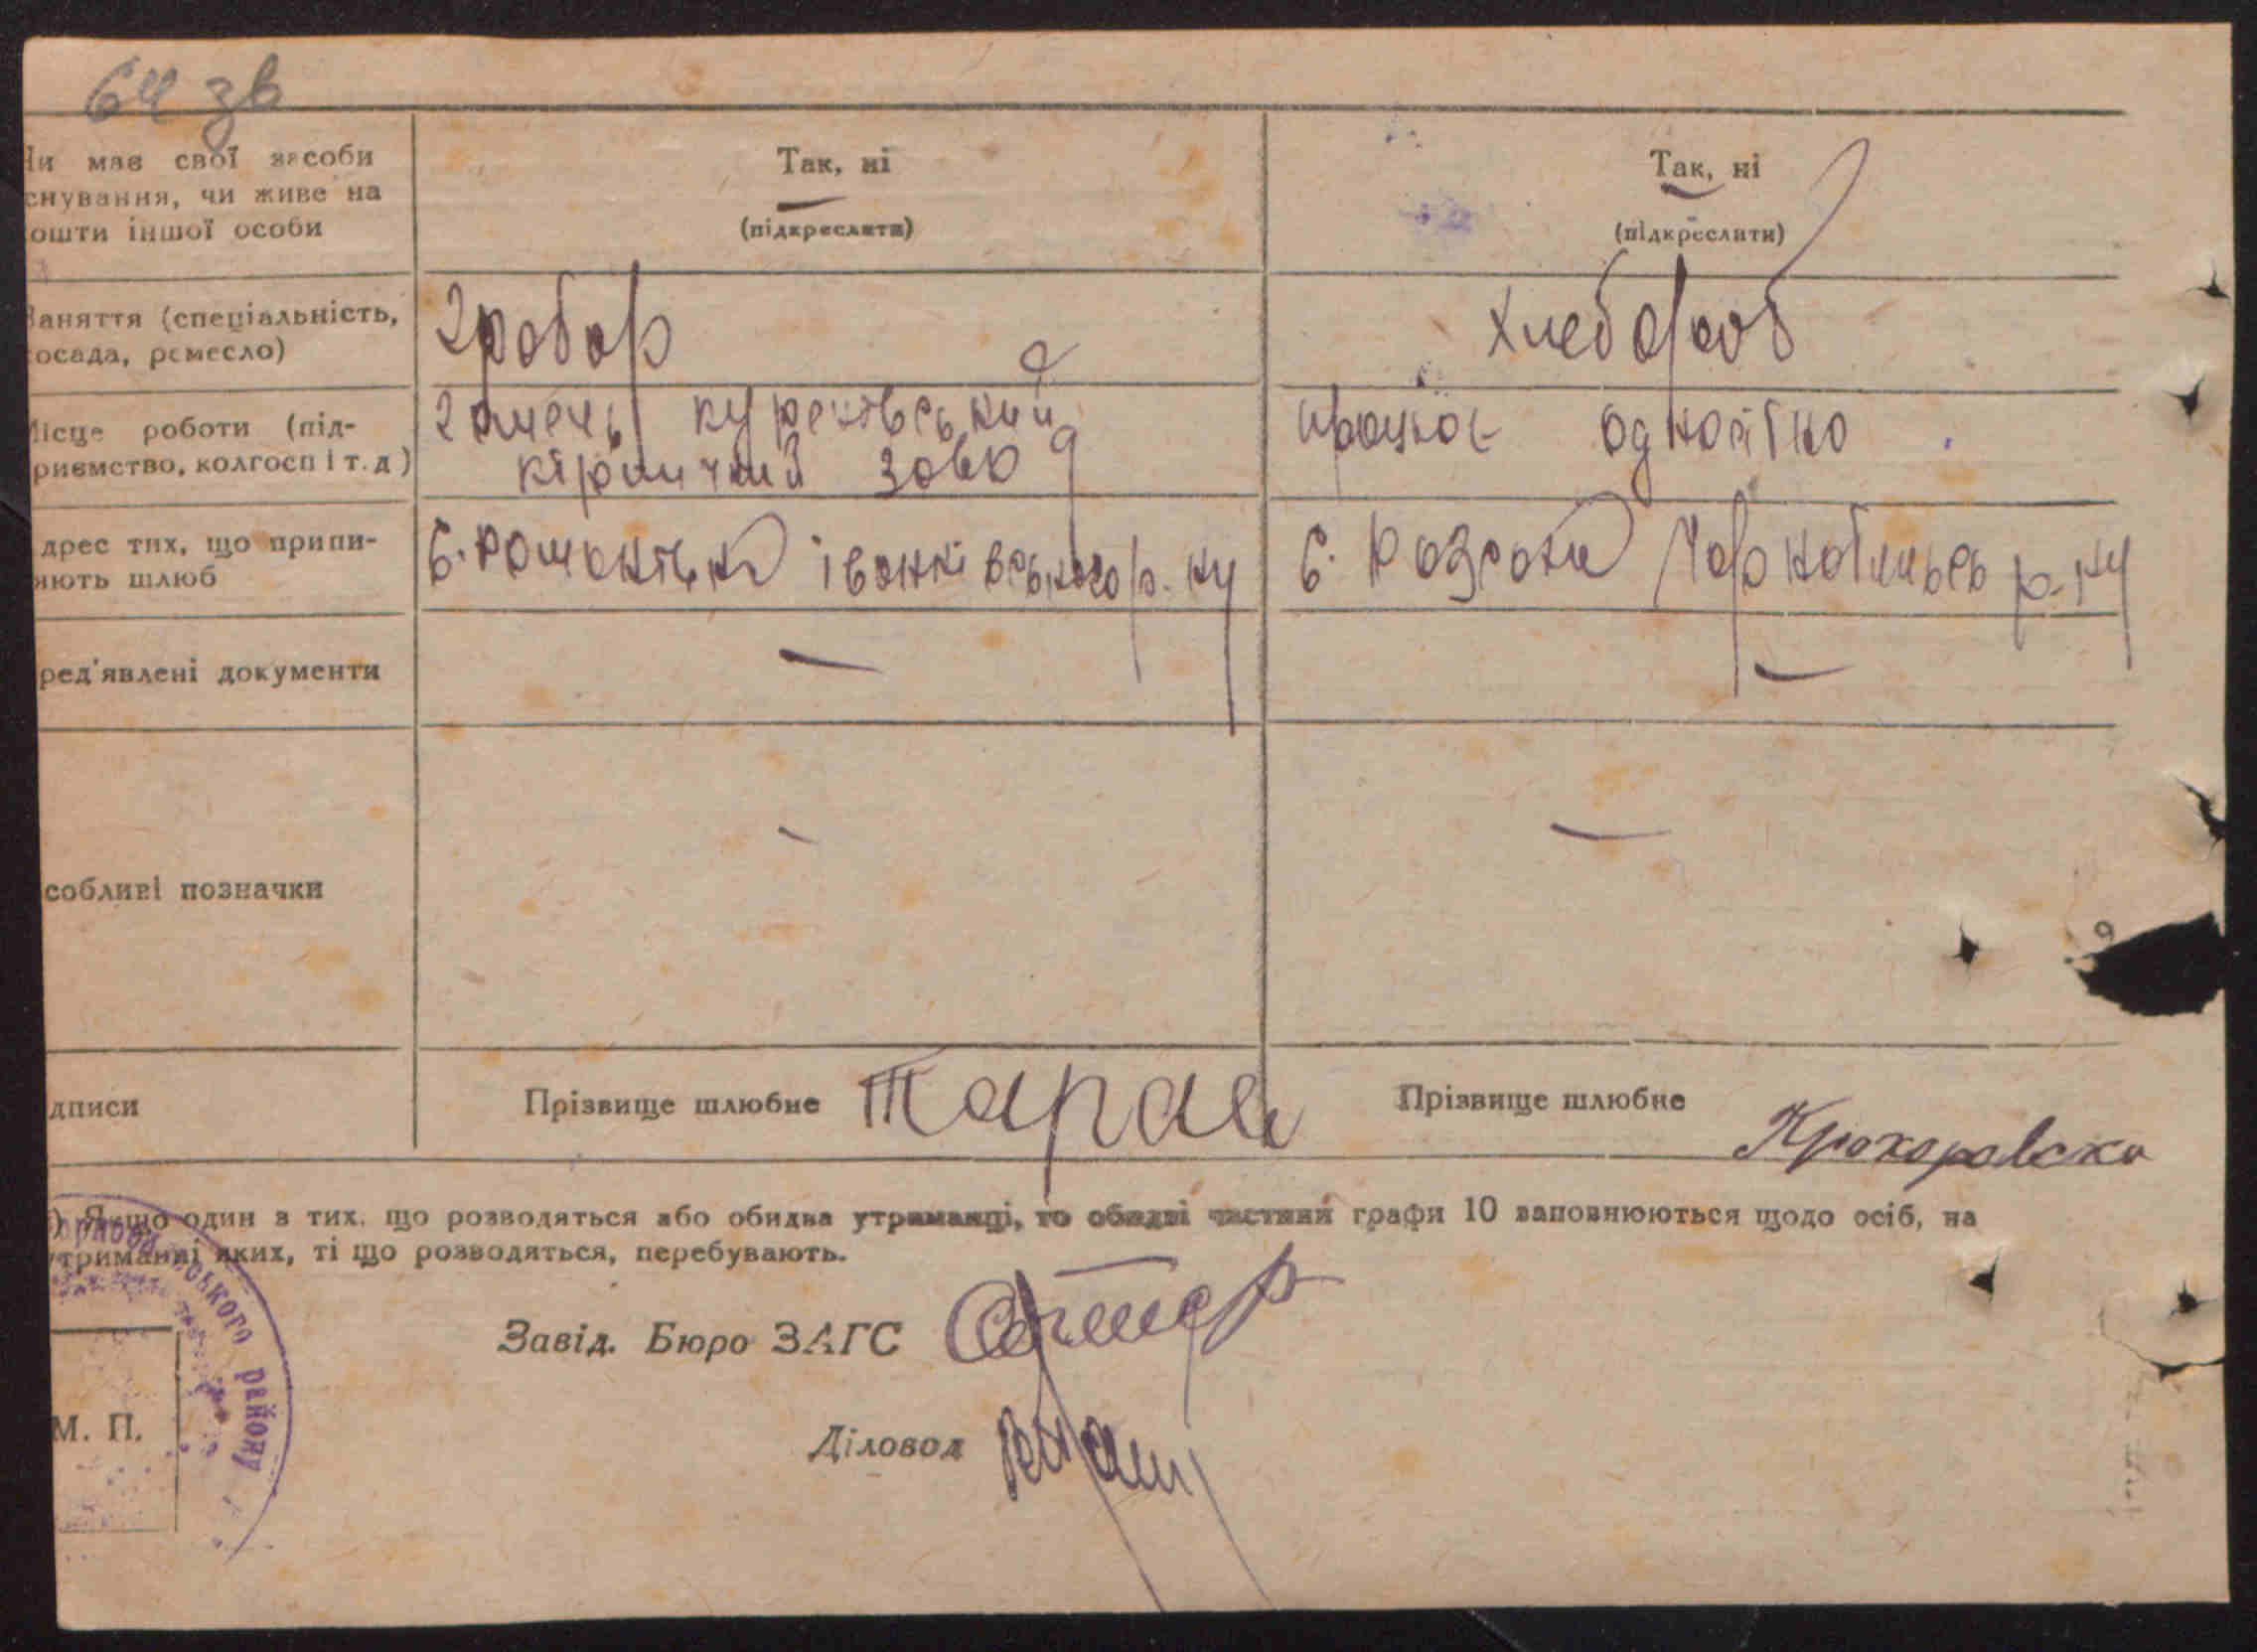 64 зв
Чи має свої засоби
снування, чи живе на
ошти іншої особи
Так, ні
(підкреслити)
Так, ні
(підкреслити)
Заняття (спеціальність,
осада, ремесло)
Грабар
хлебороб
Місце роботи (під-
риємство, колгосп і т. д)
кірпичний завод
працює одноосібно
дрес тих, що припи-
яють шлюб
с. Романівка іванківського р-ну
с. Розсоха Чорнобильсь р-ну
ред'явлені документи
—
—
собливі позначки
-
—
дписи
Прізвище шлюбне Таран
Прізвище шлюбне Прохоровска
) Якщо один з тих, що розводяться або обидва утриманці, то обидві частини графи 10 заповнюються щодо осіб, на
утриманні яких, ті що розводяться, перебувають.
ського району
Завід. Бюро ЗАГС
М. П.
Діловод